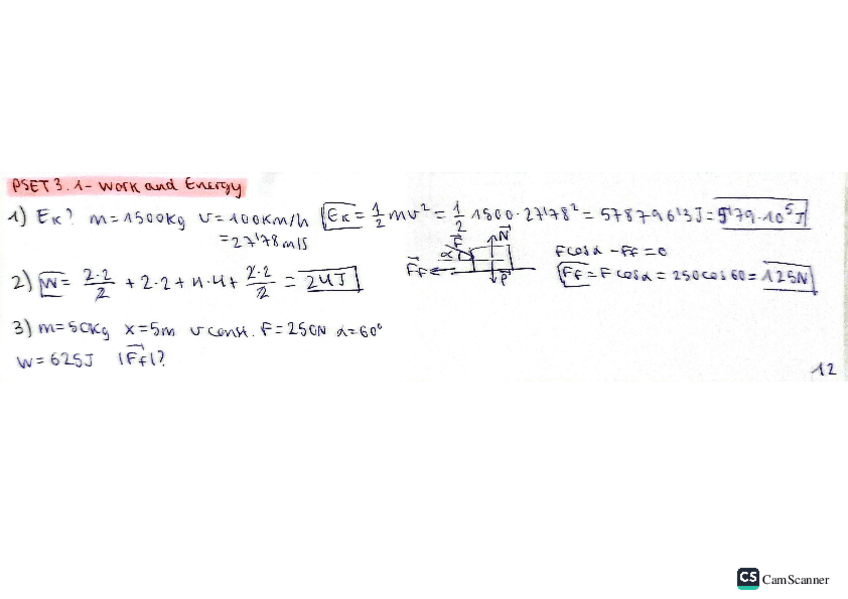 PSET 3.1- Work and Energy
1) Ek? m=1500kg v=100km/h Ek=1/2mv²=1/2 1500·27'78²=578796'3J=5'79·10⁵J
=27'78m/s
2) W=2·2/2+2·2+4·4+2·2/2=24J
F α N Ff P
Fcosα-Ff=0
Ff=Fcosα=250cos60=125N
3) m=50kg x=5m v const. F=250N α=60º
W=625J |Ff|?
12
CS CamScanner